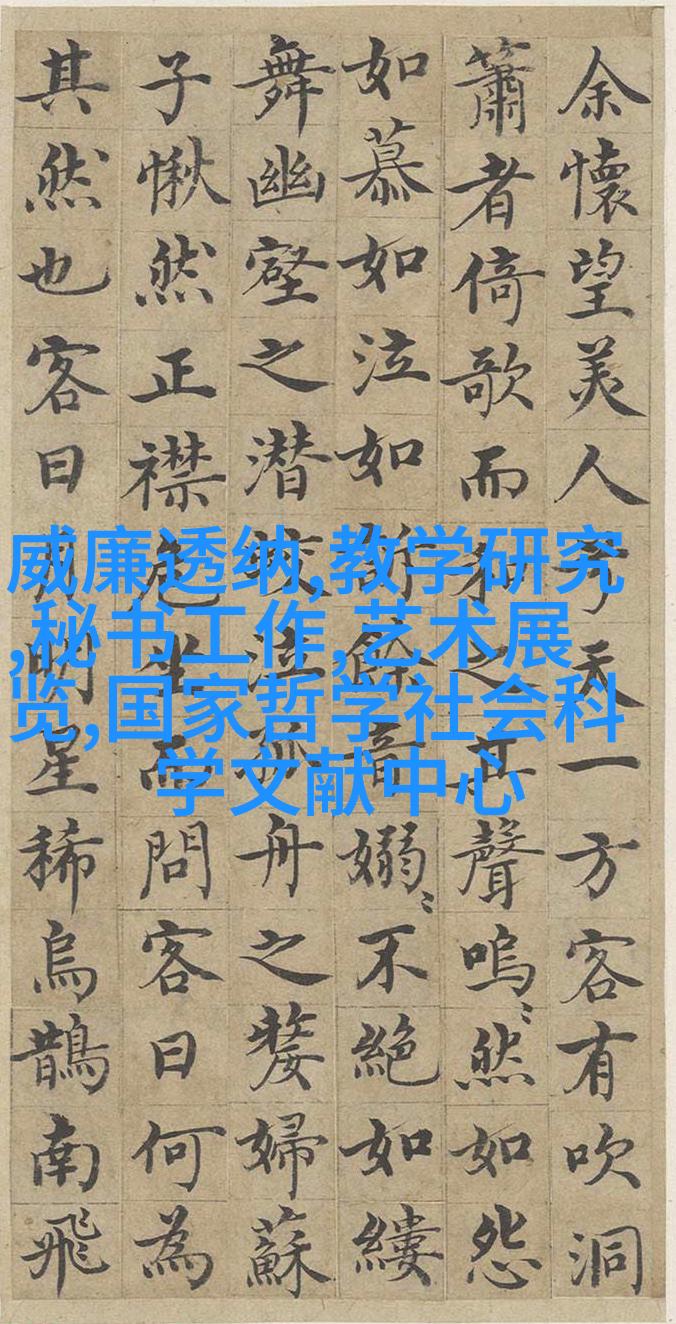 余懷望美人兮天一方客有吹洞
簫者倚歌而和之其聲嗚〻然如怨
如慕如泣如訴餘音嫋〻不絕如縷
舞幽壑之潜蛟泣孤舟之嫠婦蘇
子愀然正襟危坐而問客曰何為
其然也客曰月明星稀烏鵲南飛
威廉透纳,教学研究
,秘书工作,艺术展
览,国家哲学社会科
学文献中心